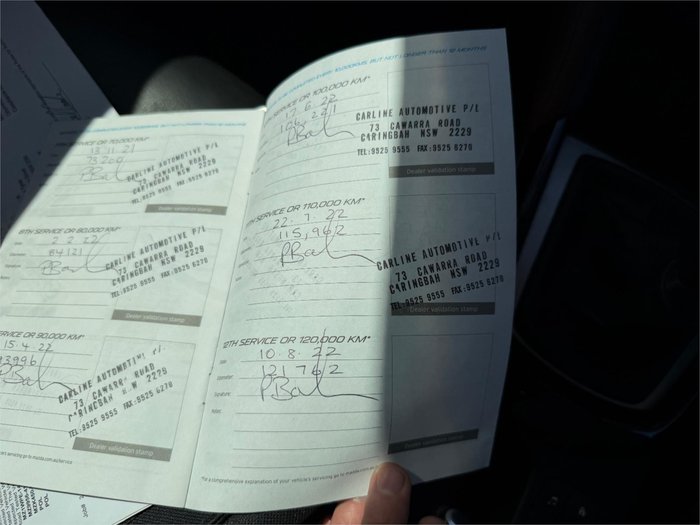 SERVICE OR 70,000 KM*
13.11.21
73200
CARLINE AUTOMOTIVE P/L
73 CAWARRA ROAD
CARINGBAH NSW 2229
TEL:9525 9555 FAX:9525 6270
Dealer validation stamp
8TH SERVICE OR 80,000 KM*
2.2.22
84121
PBal
CARLINE AUTOMOTIVE P/L
73 CAWARRA ROAD
CARINGBAH NSW 2229
TEL:9525 9555 FAX:9525 6270
Dealer validation stamp
SERVICE OR 90,000 KM*
15.4.22
93996
CARLINE AUTOMOTIVE P/L
73 CAWARRA ROAD
CARINGBAH NSW 2229
TEL:9525 9555 FAX:9525 6270
Dealer validation stamp
TO BE COMPLETED EVERY 10,000KMS, BUT NOT LONGER THAN 12 MONTHS
SERVICE OR 100,000 KM*
17.6.22
CARLINE AUTOMOTIVE P/L
73 CAWARRA ROAD
CARINGBAH NSW 2229
TEL:9525 9555 FAX:9525 6270
Dealer validation stamp
SERVICE OR 110,000 KM*
22.7.22
115,962
CARLINE AUTOMOTIVE P/L
73 CAWARRA ROAD
CARINGBAH NSW 2229
TEL:9525 9555 FAX:9525 6270
Dealer validation stamp
12TH SERVICE OR 120,000 KM*
Date: 10.8.22
Odometer: 121762
Signature:
Notes:
Dealer validation stamp